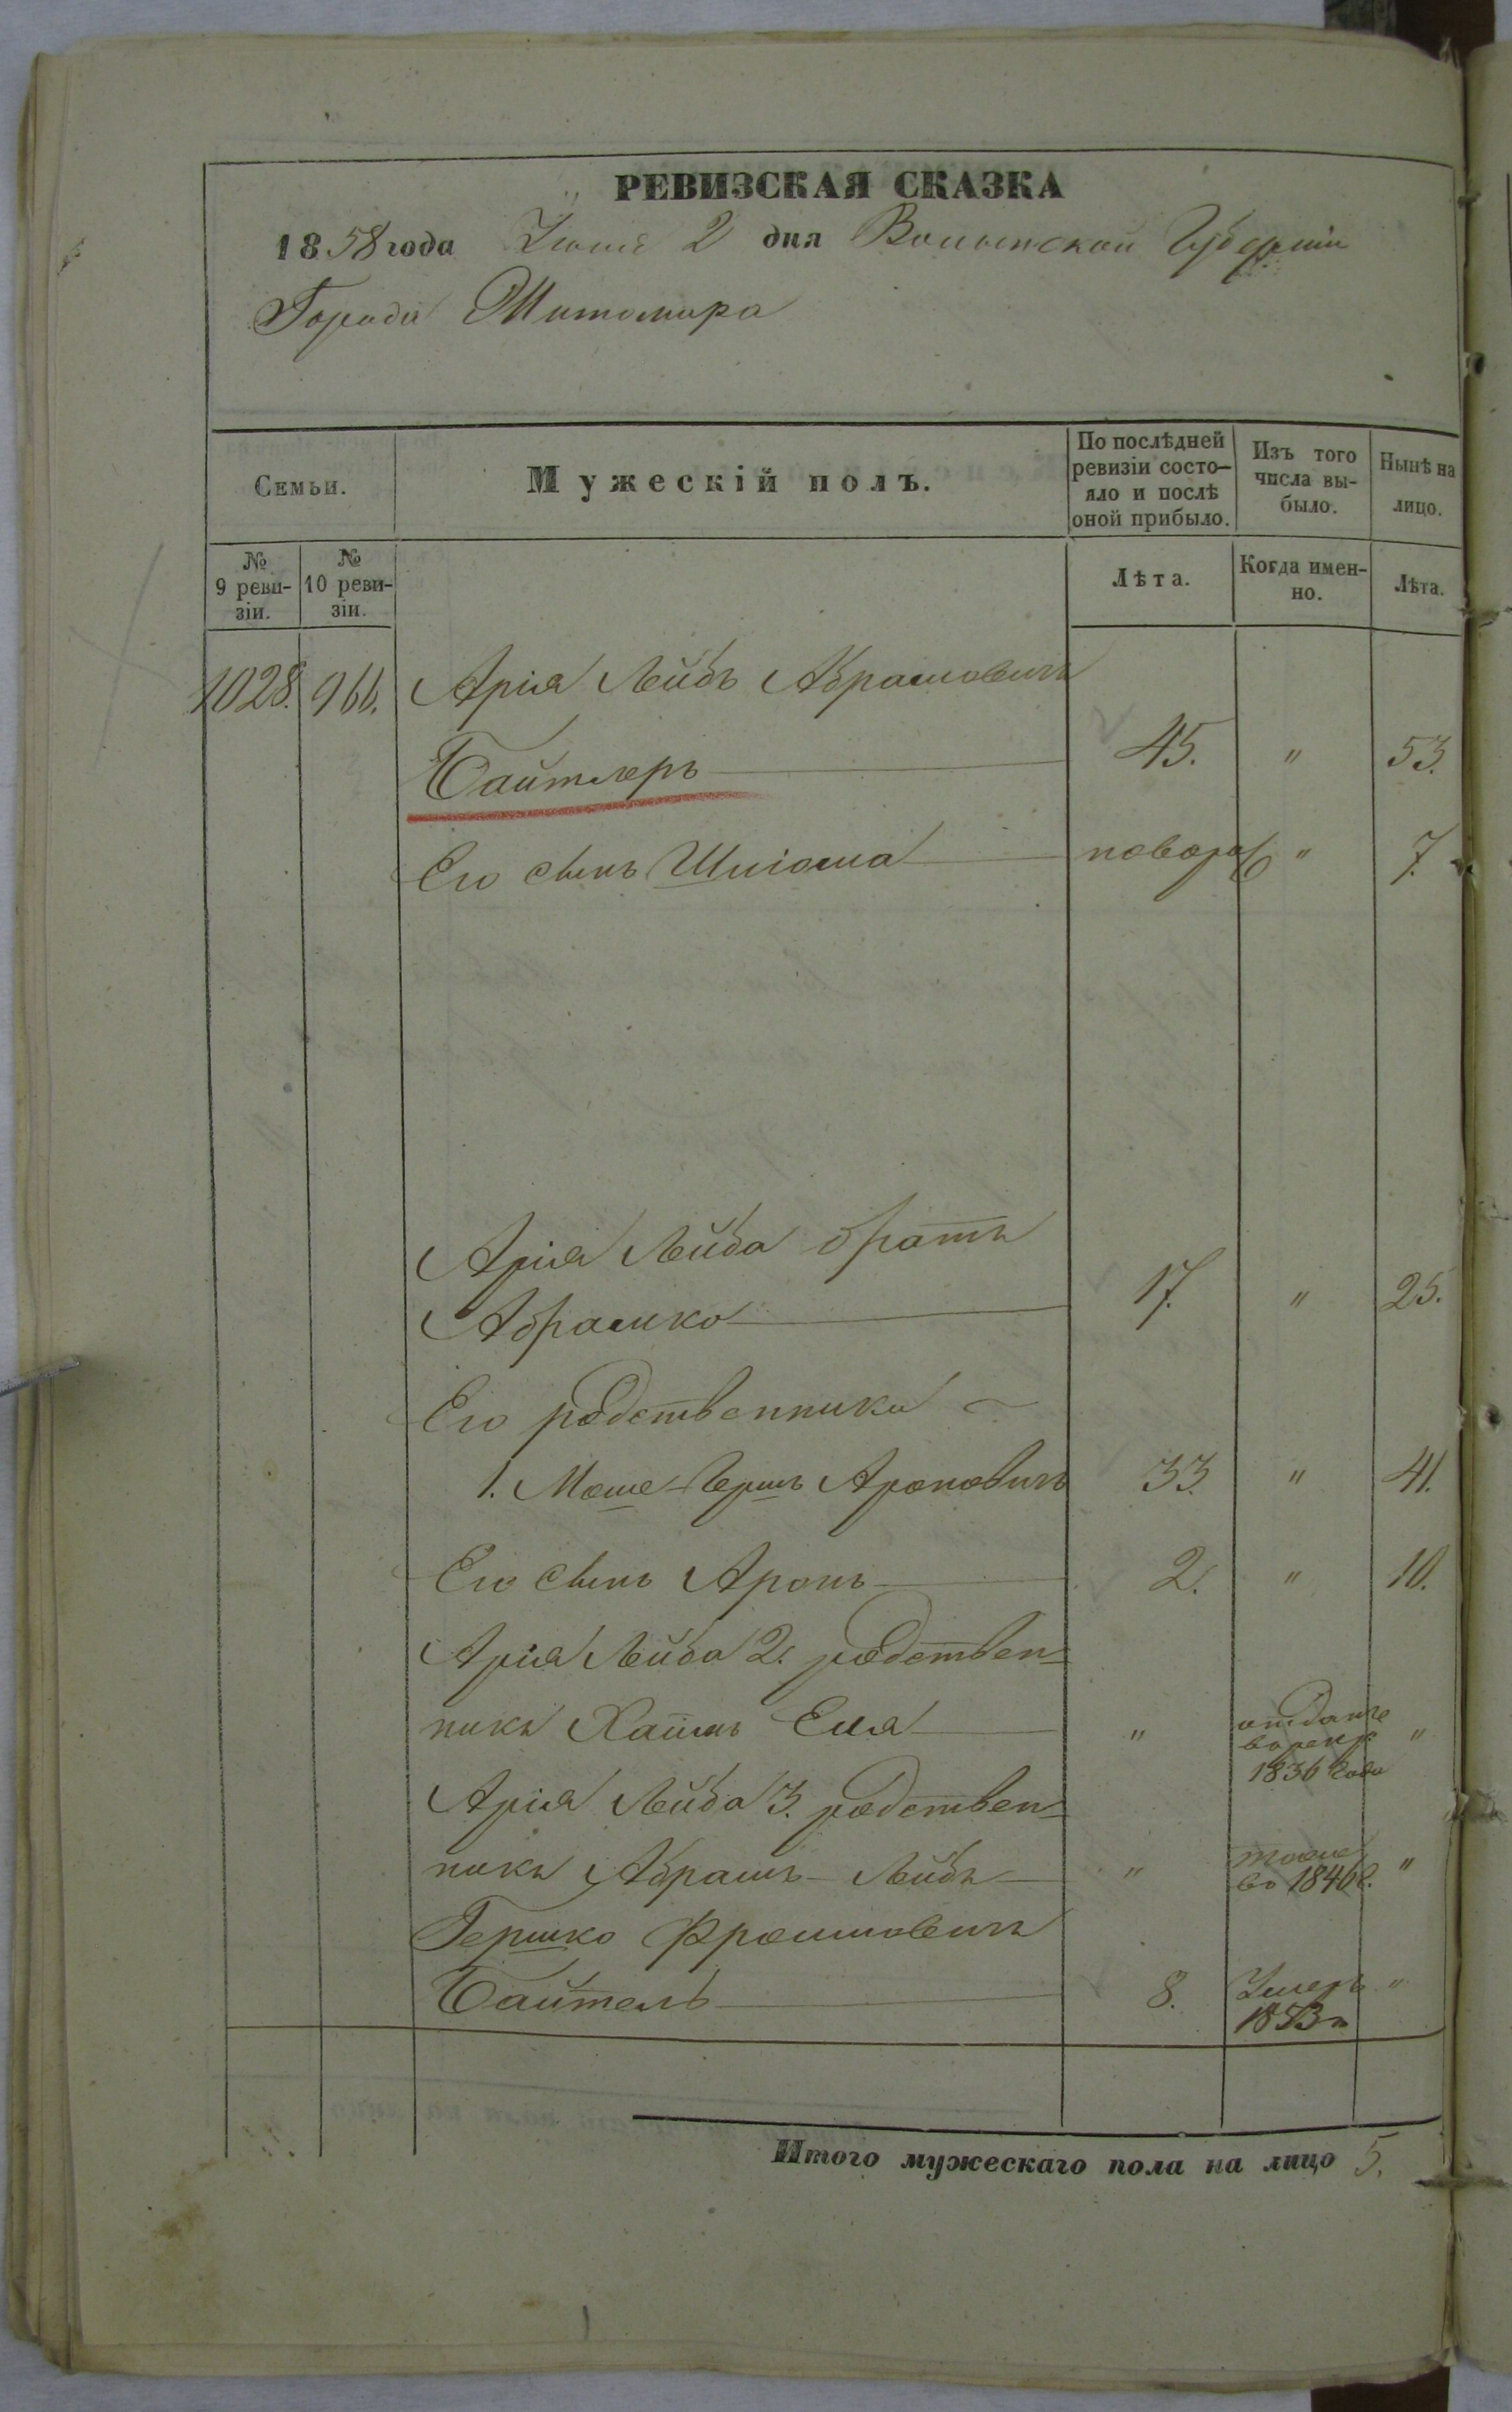 РЕВИЗСКАЯ СКАЗКА
1858 года Іюня 2 дня Волынской Губерніи
Города Житомира
Семьи.
Мужескій полъ.
По послѣдней ревизіи состо-
яло и послѣ
оной прибыло.
Изъ того
числа вы-
было.
Нынѣ на
лицо.
№
9 реви-
зіи.
№
10 реви-
зіи.
Лѣта.
Когда имен-
но.
Лѣта.
1028. 966. Арія Лейбъ Абрамовичъ
Байтлеръ 45. " 53.
Его сынъ Шліома новорож " 7.
Арія Лейба братъ
Абрамко 17. " 25.
Его родственники
1. Моше-Гершъ Ароновичъ 33. " 41.
Его сынъ Аронъ 2. " 10.
Арія Лейба 2. родствен=
никъ Хаимъ Еля " отданъ
в рекр "
1836 года
Арія Лейба 3. родствен=
никъ Абрамъ-Лейбъ " тоже
во 1846 г. "
Гершко Фроимовичъ
Байтель 8. Умеръ "
1853 г
Итого мужескаго пола на лицо 5.